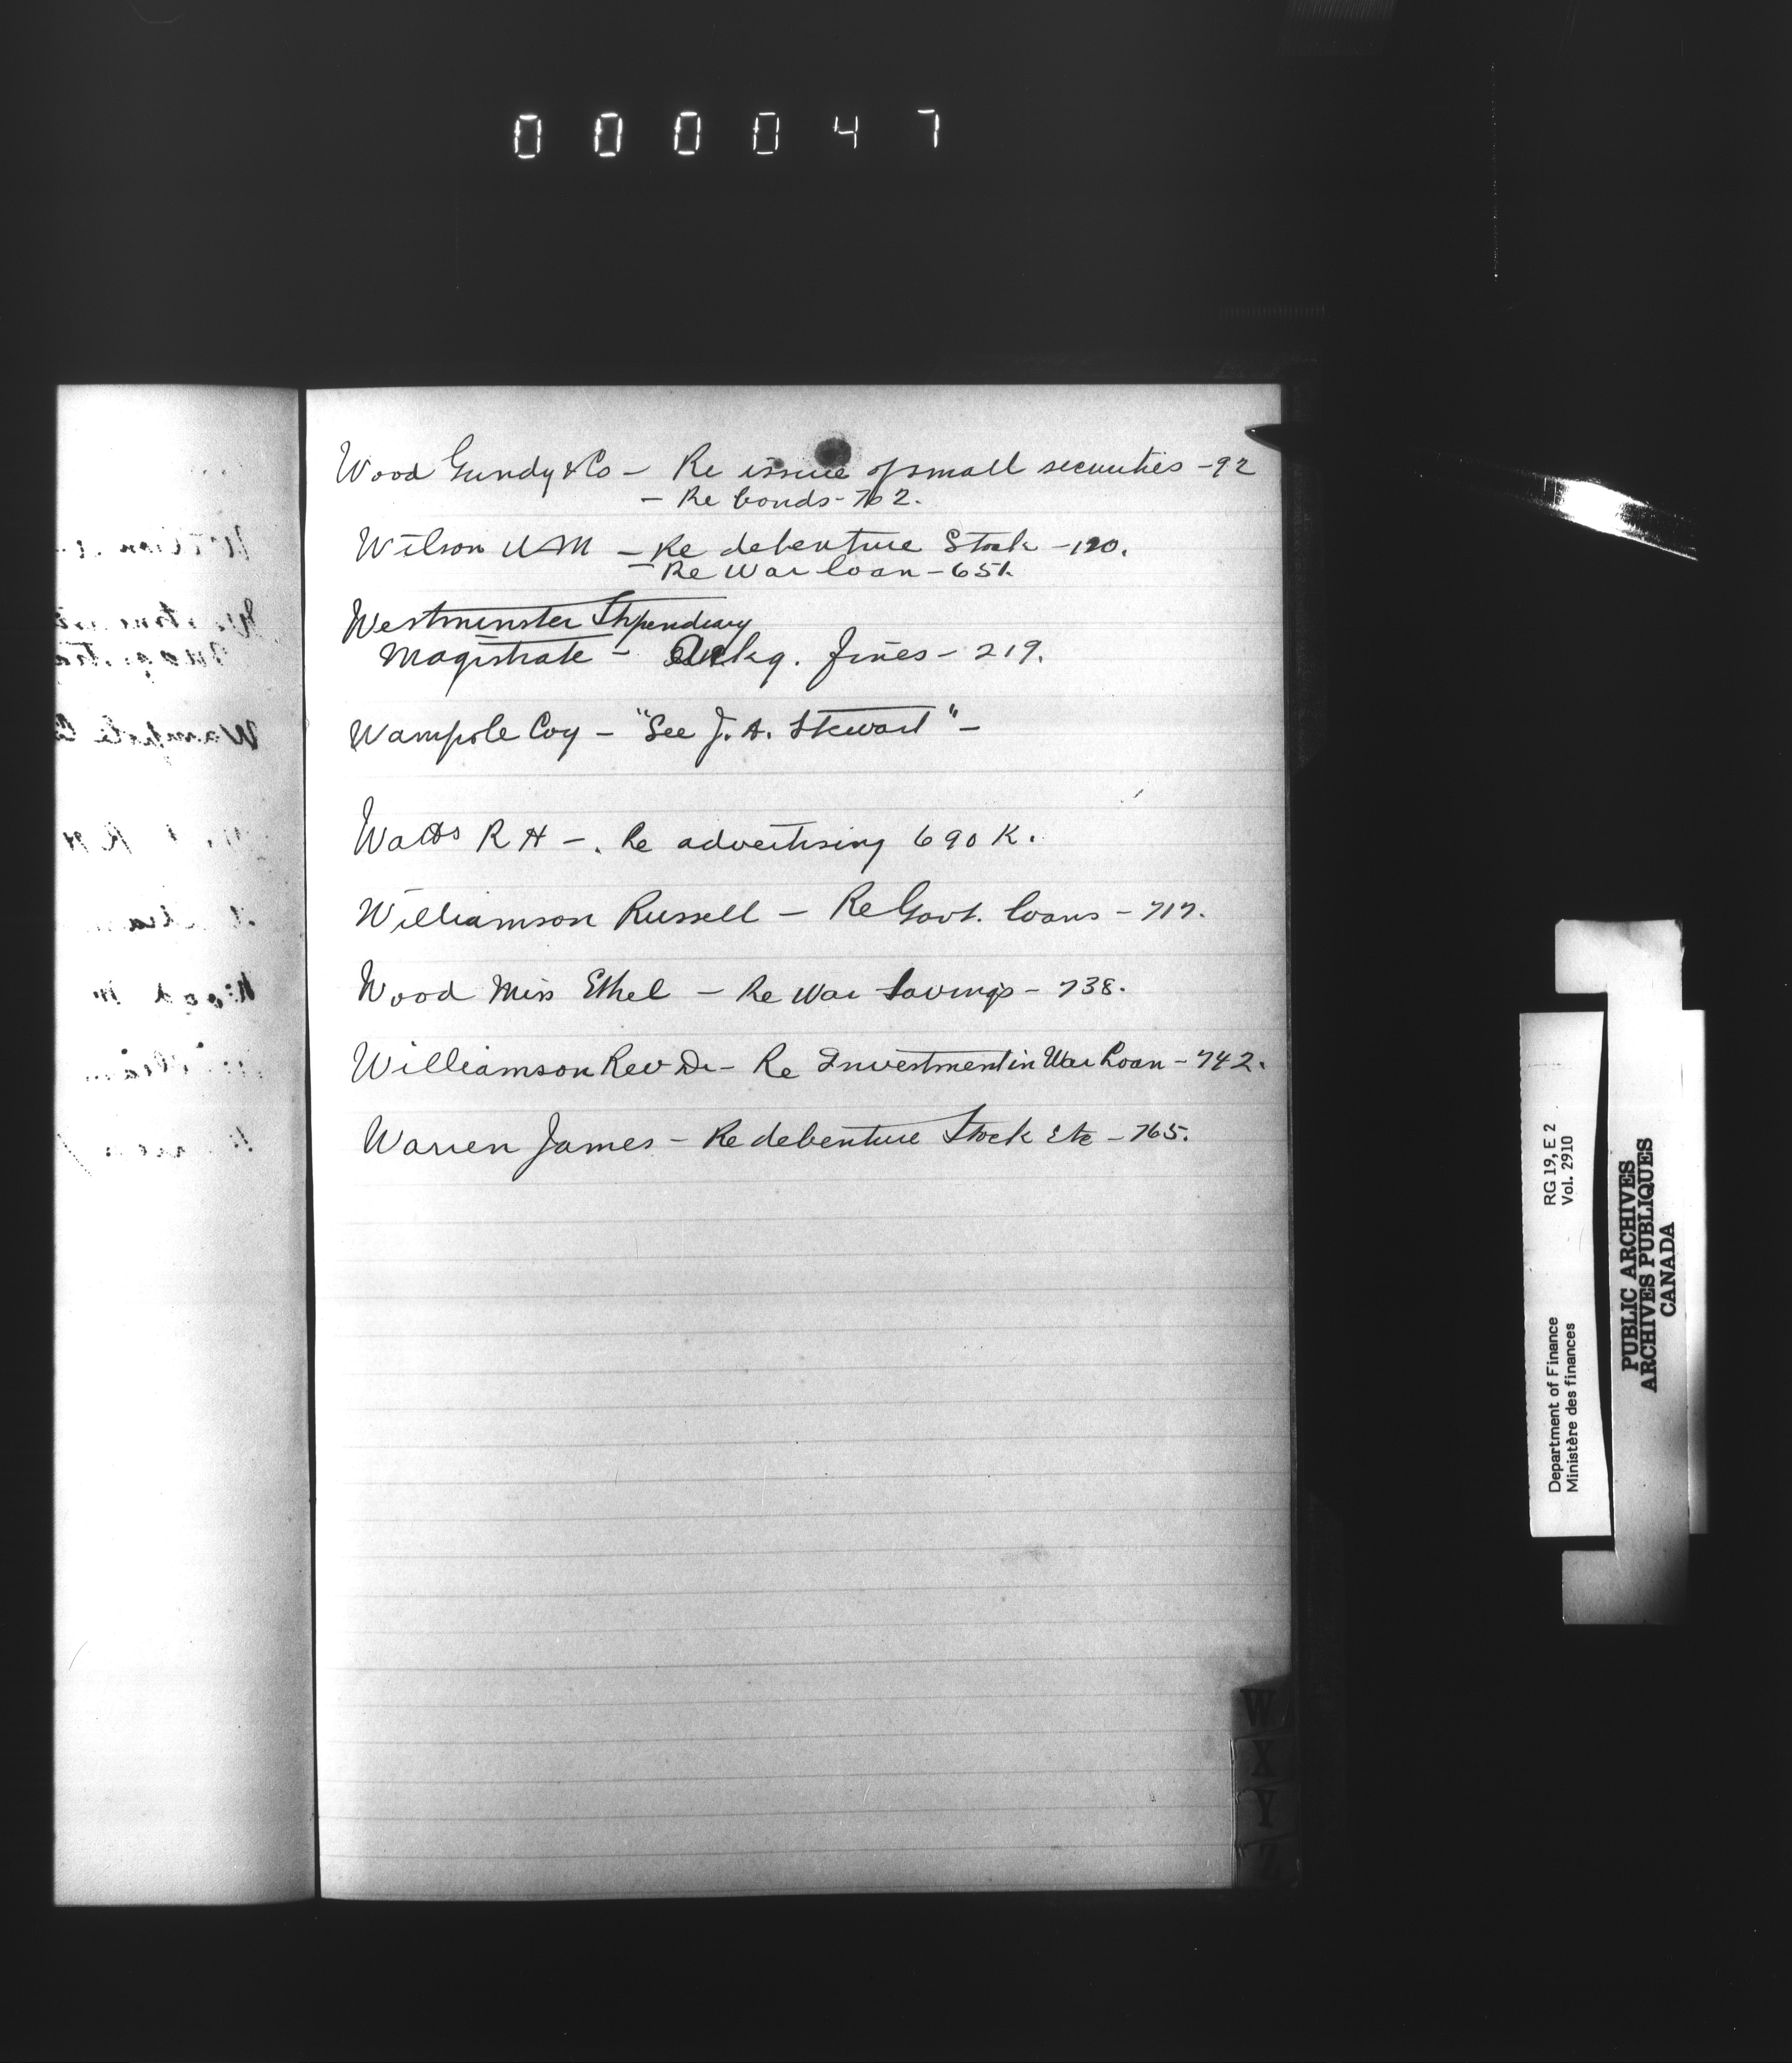 000047
Wood Gundy & Co – Re issue of small securities – 92
– Re bonds – 702.
Wilson – Re debenture Stock – 120.
– Re War loan – 651.
Westminster Stipendiary
Magistrate – Ackg. fines – 219.
Wampole Coy – "See J. A. Stewart" –
Watts R H – . Re advertising 690 K.
Williamson Russell – Re Govt. loans – 717.
Wood Miss Ethel – Re War Savings – 738.
Williamson Rev Dr – Re Investment in War Loan – 742.
Warren James – Re debenture Stock Etc – 765.
W
X
Y
Z
RG 19, E 2
Vol. 2910
Department of Finance
Ministère des finances
PUBLIC ARCHIVES
ARCHIVES PUBLIQUES
CANADA